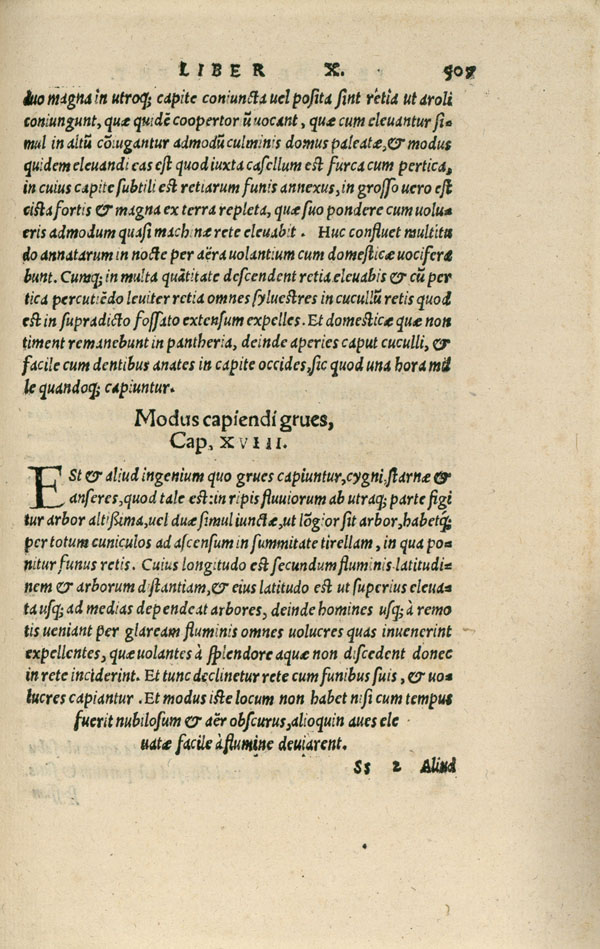 LIBER X. 507
duo magna in utroq; capite coniuncta uel posita sint retia ut aroli
coniungunt, quæ quidē coopertor ũ uocant, quæ cum eleuantur si-
mul in altũ cõiugantur admodũ culminis domus paleatæ, & modus
quidem eleuandi eas est quod iuxta casellum est furca cum pertica,
in cuius capite subtili est retiarum funis annexus, in grosso uero est
cista fortis & magna ex terra repleta, quæ suo pondere cum uolu-
eris admodum quasi machinæ rete eleuabit. Huc confluet multitu
do annatarum in nocte per aëra uolantium cum domesticæ uocifera
bunt. Cumq; in multa quãtitate descendent retia eleuabis & cũ per
tica percutiēdo leuiter retia omnes syluestres in cucullũ retis quod
est in supradicto fossato extensum expelles. Et domesticæ quæ non
timent remanebunt in pantheria, deinde aperies caput cuculli, &
facile cum dentibus anates in capite occides, sic quod una hora mil
le quandoq; capiuntur.
Modus capiendi grues,
Cap, XVIII.
ESt & aliud ingenium quo grues capiuntur, cygni, starnæ &
anseres, quod tale est: in ripis fluuiorum ab utraq; parte figi
tur arbor altißima, uel duæ simul iunctæ, ut lõgior sit arbor, habetq;
per totum cuniculos ad ascensum in summitate tirellam, in qua po-
nitur funus retis. Cuius longitudo est secundum fluminis latitudi-
nem & arborum distantiam, & eius latitudo est ut superius eleua-
ta usq; ad medias dependeat arbores, deinde homines usq; à remo
tis ueniant per glaream fluminis omnes uolucres quas inuenerint
expellentes, quæ uolantes à splendore aquæ non discedent donec
in rete inciderint. Et tunc declinetur rete cum funibus suis, & uo-
lucres capiantur. Et modus iste locum non habet nisi cum tempus
fuerit nubilosum & aër obscurus, alioquin aues ele
uatæ facile à flumine deuiarent.
Ss 2 Aliud